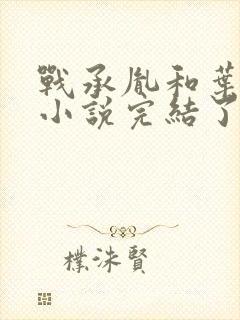 戰承胤和葉
小說完結了
樸洙賢